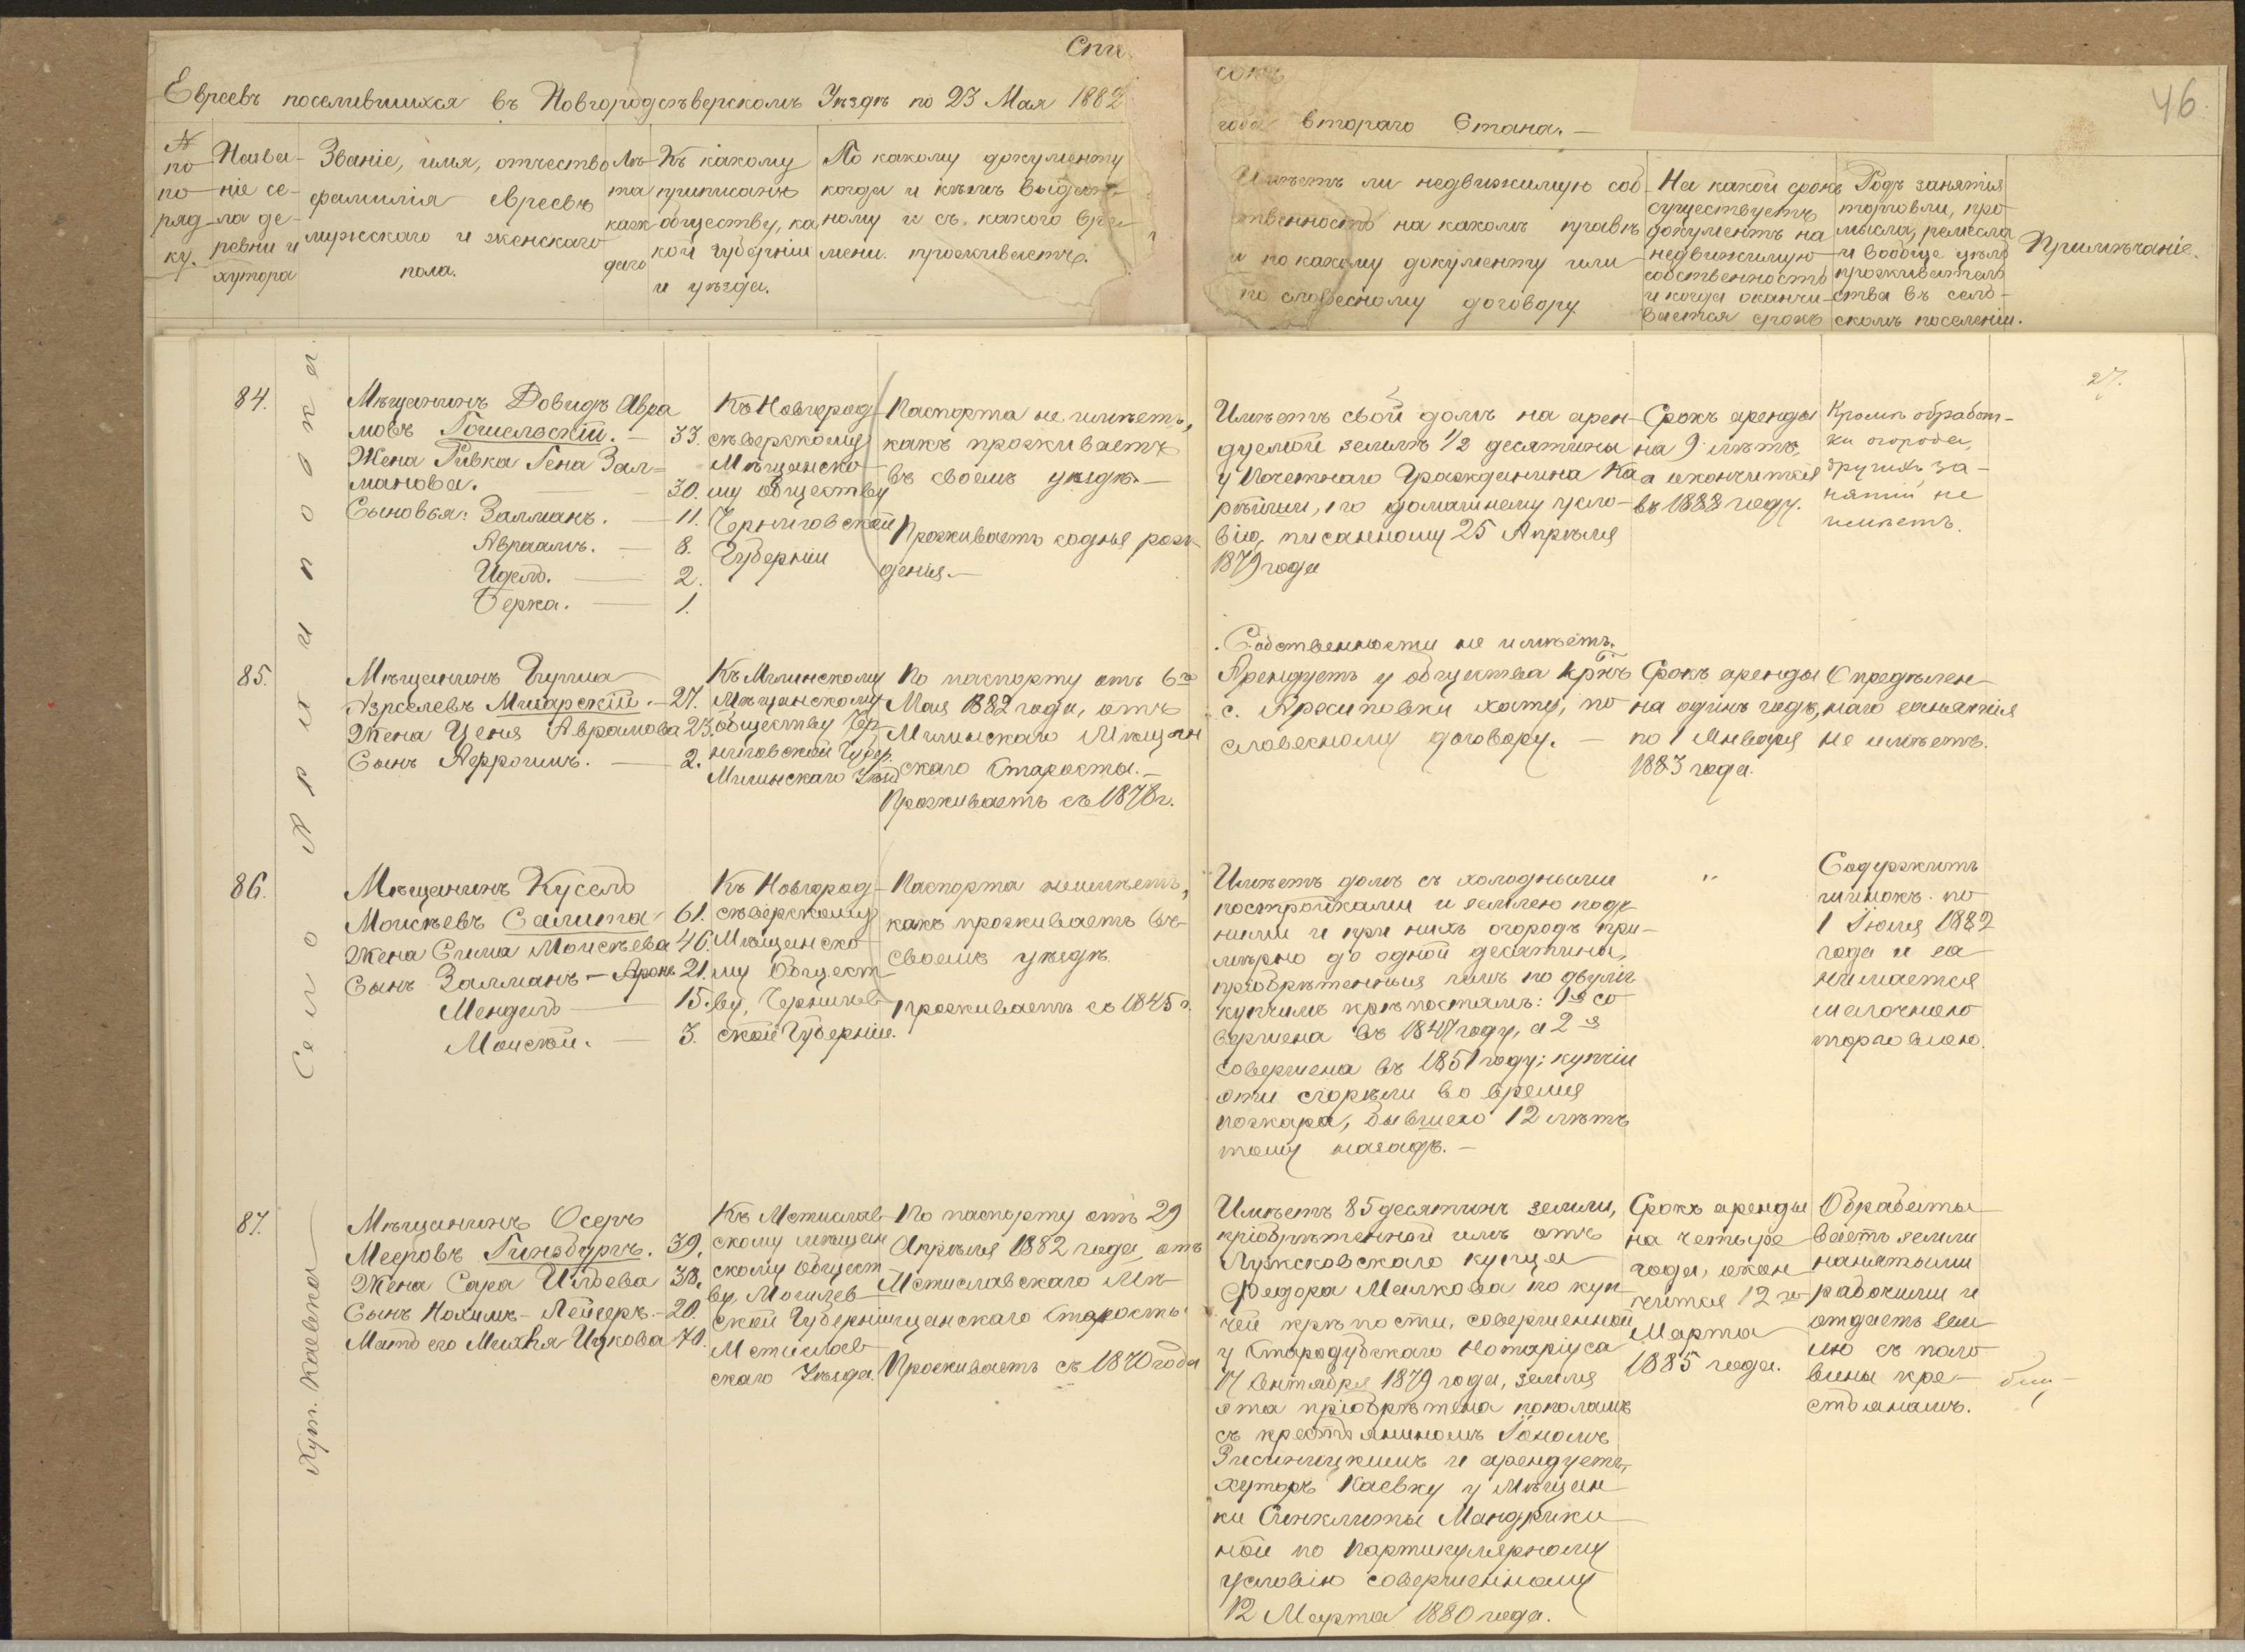 Спи
сокъ
46
Евреевъ поселившихся въ Новгородсѣверскомъ Уѣздѣ по 23 Мая 1882
года втораго Стана. —
№ по по ряд ку.
Назва-
ніе се-
ла де-
ревни и
хутора
Званіе, имя, отчество
фамилія евреевъ
мужскаго и женскаго
пола.
Лѣ-
та
каж
даго
Къ какому
приписанъ
обществу, ка
кой губерніи
и уѣзда.
По какому документу
когда и кѣмъ выдан-
ному и съ какого вре-
мени проживаетъ.
Имѣетъ ли недвижимую соб-
ственность на какомъ правѣ
и по какому документу или
по словесному договору
На какой срокъ
существуетъ
документъ на
недвижимую
собственность
и когда оканчи-
вается срокъ
Родъ занятія
торговли, про
мысла, ремесла
и вообще цѣль
прожигатель
ства въ сель-
скомъ поселеніи.
Примѣчаніе.
27.
Село Архиповка
84.
Мѣщанинъ Довидъ Авра
мовъ Гомельскій. — 33.
Жена Ривка Гена Зал-
манова. — 30.
Сыновья: Залманъ. — 11.
Авраамъ. — 8.
Идель. — 2.
Берка. — 1.
Къ Новгород-
сѣверскому
Мѣщанско-
му обществу
Черниговской
Губерніи
Паспорта не имѣетъ,
какъ проживаетъ
въ своемъ уѣздѣ. —
Проживаетъ со дня рож-
денія. —
Имѣетъ свой домъ на арен-
дуемой землѣ 1/2 десятины
у Почетнаго Гражданина Ка
рѣйши, по домашнему усло-
вію, писанному 25 Апрѣля
1879 года
Срокъ аренды
на 9 лѣтъ,
а окончится
въ 1888 году.
Кромѣ обработ-
ки огорода,
другихъ за-
нятій не
имѣетъ.
85.
Мѣщанинъ
Азріелевъ Мшарскій. — 27.
Жена Ценя Аврамова 23.
Сынъ Аффроимъ. — 2.
Къ Мглинскому
Мѣщанскому
обществу Чер-
ниговской Губер.
Мглинскаго Уѣзд
По паспорту отъ 6го
Мая 1882 года, отъ
Мглинскаго Мѣщан
скаго Старосты. —
Проживаетъ съ 1878 г.
Собственности не имѣетъ.
Арендуетъ у общества кр-нъ
с. Архиповки хату, по
словесному договору. —
Срокъ аренды
на одинъ годъ,
по 1 Января
1883 года.
Опредѣлен-
наго занятія
не имѣетъ.
86.
Мѣщанинъ Кусель
Моисѣевъ Салита 61.
Жена Сима Моисѣева 46.
Сынъ Залманъ — Аронъ 21.
Мендель — 15.
Моисѣй. — 3.
Къ Новгород-
сѣверскому
Мѣщанско
му Общест
ву, Чернигов
ской Губерніи.
Паспорта неимѣетъ,
какъ проживаетъ въ
своемъ уѣздѣ.
проживаетъ съ 1845 г.
Имѣетъ домъ съ холодными
постройками и землею подъ
ними и при нихъ огородъ при-
мѣрно до одной десятины,
пріобрѣтенныя имъ по двумъ
купчимъ крѣпостямъ: 1я со
вершена въ 1847 году, а 2я
совершена въ 1851 году; купчіи
эти сгорѣли во время
пожара, бывшего 12 лѣтъ
тому назадъ. —
"
Содержитъ
шинокъ по
1 Іюля 1882
года и за
нимается
мелочною
торговлею.
Хут. Каевка
87.
Мѣщанинъ Осеръ
Мееровъ Гинзбургъ. 39.
Жена Сара Ильева 38.
Сынъ Нохимъ-Лейзеръ. — 20.
Мать его Малхъя Ицкова 70.
Къ Мстислав
скому мѣщан
скому Общест
ву, Могилев
ской Губерніи
Мстислав
скаго Уѣзда.
По паспорту отъ 29
Апрѣля 1882 года, отъ
Мстиславскаго Мѣ-
щанскаго Старосты
Проживаетъ съ 1870 года
Имѣетъ 85 десятинъ земли,
пріобрѣтенной имъ отъ
Лужсковскаго купца
Федора Малкова по куп
чей крѣпости, совершенной
у Стародубскаго Нотаріуса
17 Сентября 1879 года, земля
эта пріобрѣтена пополамъ
съ крестьяниномъ
и арендуетъ
хуторъ Каевку у Мѣщан
ки Синклиты Мандрыки
ной по партикулярному
условію совершенному
12 Марта 1880 года.
Срокъ аренды
на четыре
года, окон
чится 12 го
Марта
1885 года.
Обрабаты
ваетъ земли
нанятыми
рабочими и
отдаетъ зем
лю съ поло
вины кре-
стьянамъ.